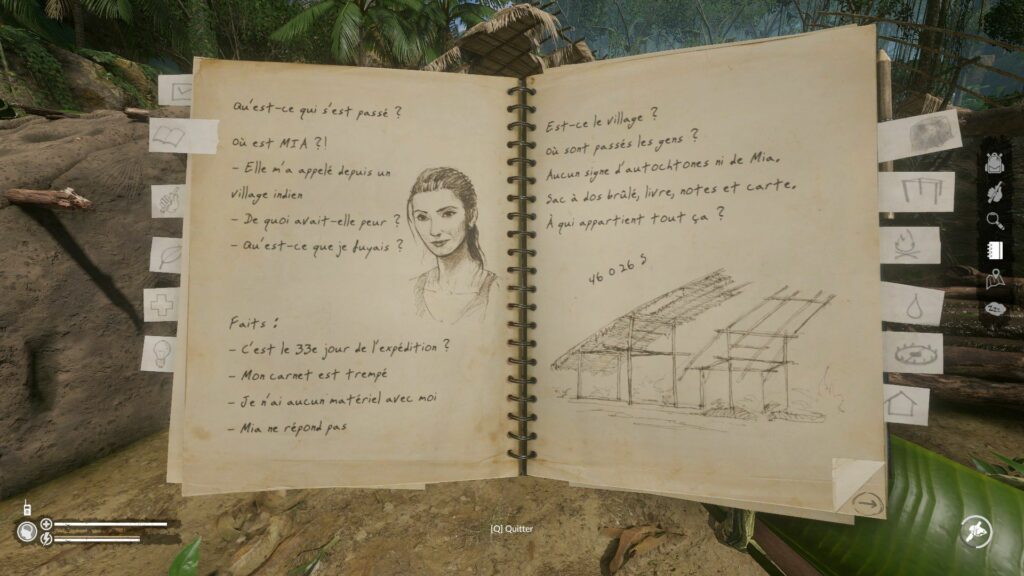 Qu'est-ce qui s'est passé ?
Où est MIA ?!
- Elle m'a appelé depuis un
village indien
- De quoi avait-elle peur ?
- Qu'est-ce que je fuyais ?
Faits :
- C'est le 33e jour de l'expédition ?
- Mon carnet est trempé
- Je n'ai aucun matériel avec moi
- Mia ne répond pas
Est-ce le village ?
Où sont passés les gens ?
Aucun signe d'autochtones ni de Mia.
Sac à dos brûlé, livre, notes et carte.
À qui appartient tout ça ?
46 O 26 S
[Q] Quitter